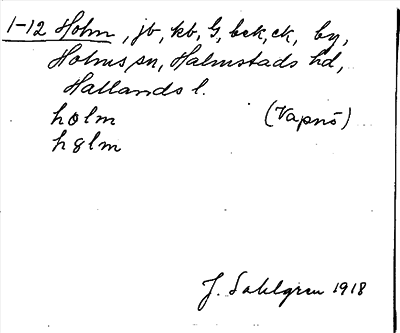 1-12 Holm, jb, kb, G, bek, ek, by,
Holms sn, Halmstads hd,
Hallands l.
holm (Vapnö)
hɞlm
J. Sahlgren 1918